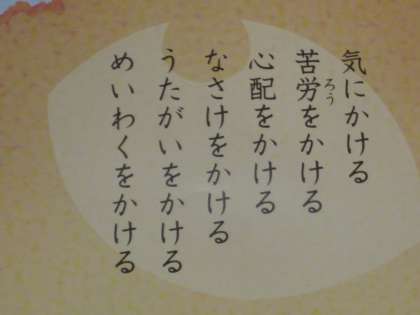 気にかける
苦労をかける
ろう
心配をかける
なさけをかける
うたがいをかける
めいわくをかける